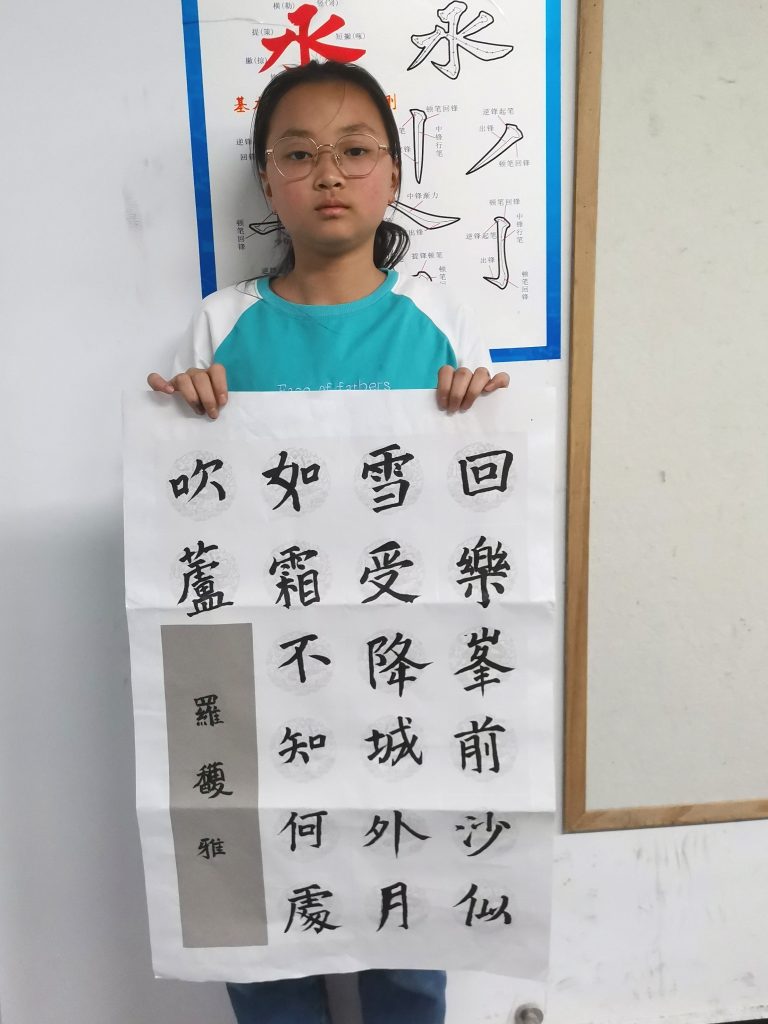 永 永
横(勒)
提(策)
顿笔回锋
逆锋起笔
中锋行笔
出锋
顿笔回锋
中锋渐力
出锋
顿笔回锋
顿笔回锋
逆锋起笔
中锋行笔
出锋
提锋顿笔
顿笔回锋
Face of fathers
回樂峯前沙似
雪受降城外月
如霜不知何處
吹蘆
羅馥雅